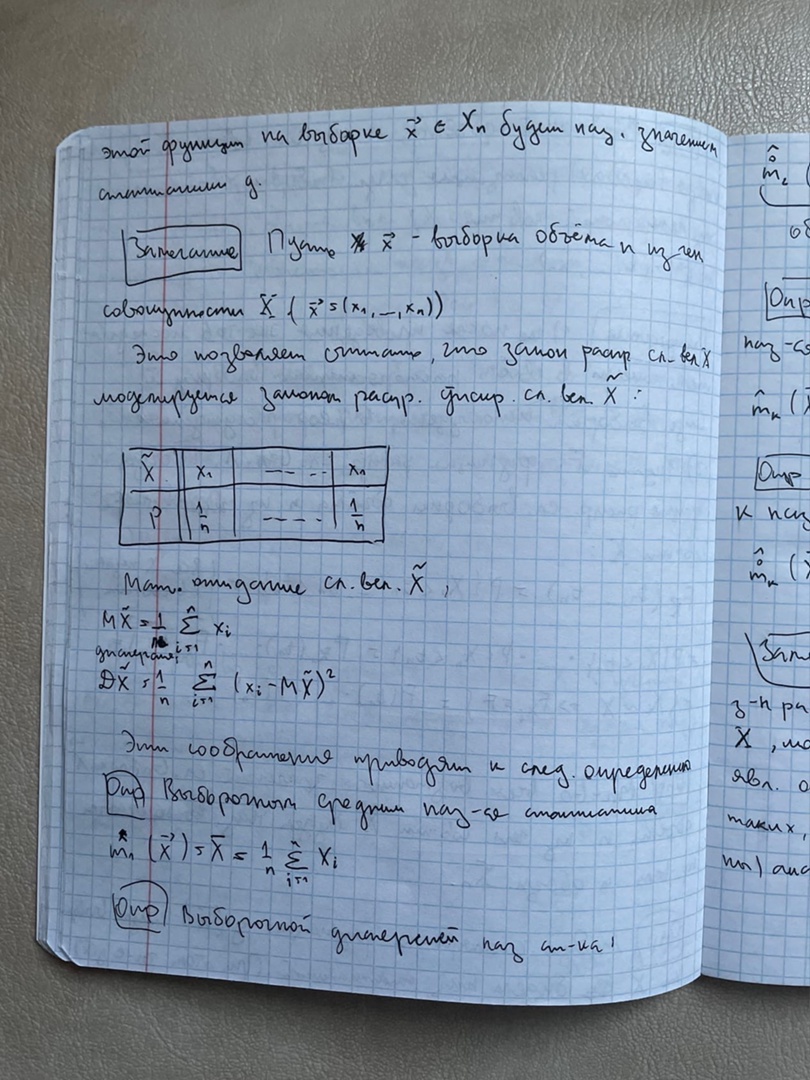 этой функции на выборке x⃗ ∈ Xₙ будем наз. значением
статистики g.
Замечание Пусть x⃗ - выборка объёма n из ген
совокупности X ( x⃗ = (x₁, ..., xₙ))
Это позволяет считать, что закон распр сл. вел X
моделируется законом распр. дискр. сл. вел. X̃ :
X̃ x₁ ---- .. xₙ
P 1/n ---- . 1/n
Мат. ожидание сл. вел. X̃ ,
MX̃ = 1/n Σᵢ₌₁ⁿ xᵢ
дисперсия:
DX̃ = 1/n Σᵢ₌₁ⁿ (xᵢ - MX̃)²
Эти соображения приводят к след. определению
Опр Выборочным средним наз-ся статистика
m̂₁ (X⃗) = X̄ = 1/n Σᵢ₌₁ⁿ Xᵢ
Опр Выборочной дисперсией наз ст-ка:
m̂₂ (
об
Опр
наз-ся
m̂ₖ (X
Опр
к наз
m̂ₖ (X
Заме
з-н ра
X , мо
явл. о
таких,
ты) ана